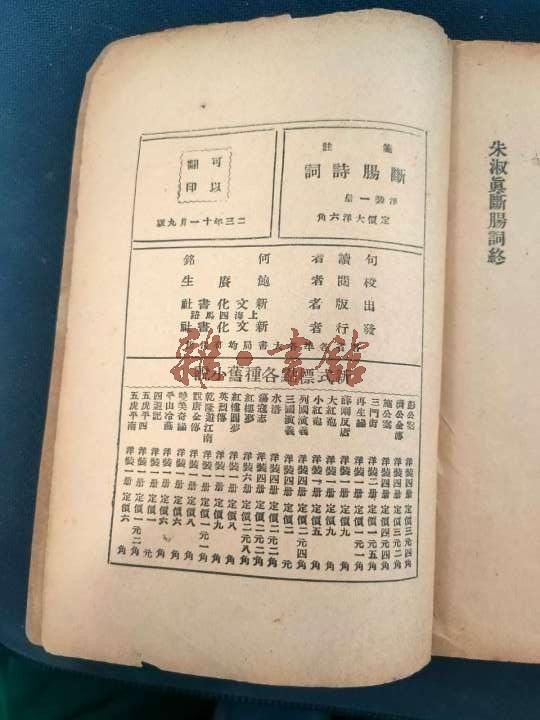 朱淑眞斷腸詞終
箋註
斷腸詩詞
洋裝一
定價大洋六角
可以
翻印
二三年十一月九版
句讀者 何銘
校閱者 鮑賡生
出版者 新文化書社
上海四馬路
發行者 新文化書社
新式標點各種舊小說
彭公案 洋裝四册 定價三元四角
濟公全傳 洋裝四册 定價三元二角
施公案 洋裝四册 定價四元四角
三門街 洋裝二册 定價一元五角
再生緣 洋裝二册 定價一元一角
薛剛反唐 洋裝一册 定價九角
大紅袍 洋裝一册 定價九角
小紅袍 洋裝一册 定價五角
列國演義 洋裝四册 定價二元四角
三國演義 洋裝四册 定價二元
水滸 洋裝四册 定價二元二角
蕩寇志 洋裝四册 定價二元二角
紅樓夢 洋裝六册 定價二元八角
紅樓圓夢 洋裝一册 定價八角
英烈傳 洋裝一册 定價九角
乾隆遊江南 洋裝一册 定價一元一角
說唐全傳 洋裝一册 定價八角
曉美奇緣 洋裝一册 定價六角
平山冷燕 洋裝一册 定價六角
四遊記 洋裝一册 定價一元
五虎平西 洋裝一册 定價一元二角
五虎平南 洋裝一册 定價六角
雅·書館